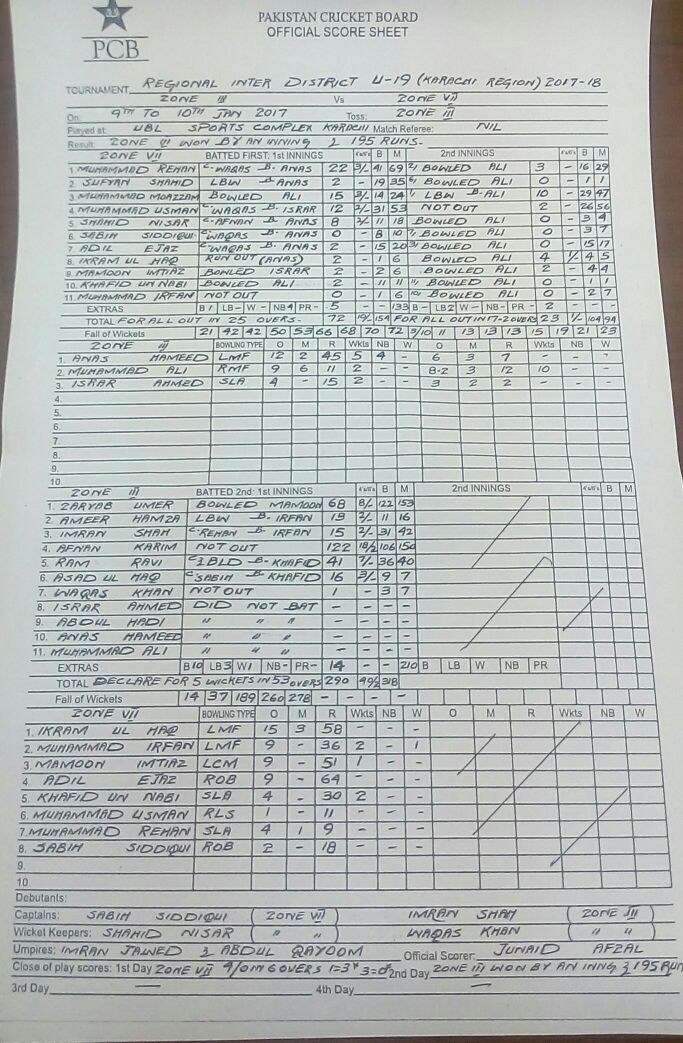 PCB
PAKISTAN CRICKET BOARD
OFFICIAL SCORE SHEET
TOURNAMENT REGIONAL INTER DISTRICT U-19 (KARACHI REGION) 2017-18
ZONE III Vs ZONE VII
On: 9TH TO 10TH JAN 2017 Toss: ZONE III
Played at: UBL SPORTS COMPLEX KARACHI Match Referee: NIL
Result: ZONE III WON BY AN INNING & 195 RUNS.
ZONE VII BATTED FIRST: 1st INNINGS B M 2nd INNINGS B M
1. MUHAMMAD REHAN C- WAQAS B- ANAS 22 3/- 41 69 BOWLED ALI 3 - 16 29
2. SUFYAN SHAHID LBW B- ANAS 2 - 19 35 BOWLED ALI 0 - 1 1
3. MUHAMMAD MOAZZAM BOWLED ALI 15 3/- 14 24 LBW B- ALI 10 - 29 47
4. MUHAMMAD USMAN C- WAQAS B- ISRAR 12 3/- 31 53 NOT OUT 2 - 26 56
5. SHAHID NISAR C- AFNAN B- ANAS 8 11 18 BOWLED ALI 0 - 3 4
6. SABIH SIDDIQUI C- WAQAS B- ANAS 0 - 8 10 BOWLED ALI 0 - 3 7
7. ADIL EJAZ C- WAQAS B- ANAS 2 - 15 20 BOWLED ALI 0 - 15 17
8. IKRAM UL HAQ RUN OUT (ANAS) 2 - 1 6 BOWLED ALI 4 1/- 4 5
9. MAMOON IMTIAZ BOWLED ISRAR 2 - 2 6 BOWLED ALI 2 - 4 4
10. KHAFID UN NABI BOWLED ALI 2 - 11 11 BOWLED ALI 0 - 1 1
11. MUHAMMAD IRFAN NOT OUT 0 - 1 6 BOWLED ALI 0 - 2 7
EXTRAS B7 LB- W- NB4 PR- 5 - - 133 B- LB2 W- NB- PR- 2 - - -
TOTAL FOR ALL OUT IN 25 OVERS. 72 154 FOR ALL OUT IN 17-2 OVERS 23 1/- 104 94
Fall of Wickets 21 42 42 50 53 66 68 70 72 3/10 11 13 13 13 15 19 21 23
ZONE III BOWLING TYPE O M R Wkts NB W O M R Wkts NB W
1. ANAS HAMEED LMF 12 2 45 5 4 - 6 3 7 - -
2. MUHAMMAD ALI RMF 9 6 11 2 - - 8-2 3 12 10 - -
3. ISRAR AHMED SLA 4 - 15 2 - - 3 2 2 - - -
4.
5.
6.
7.
8.
9.
10.
ZONE III BATTED 2nd: 1st INNINGS B M 2nd INNINGS B M
1. ZARYAB UMER BOWLED MAMOON 68 8/- 122 153
2. AMEER HAMZA LBW B- IRFAN 13 2/- 11 16
3. IMRAN SHAH C- REHAN B- IRFAN 15 2/- 31 42
4. AFNAN KARIM NOT OUT 122 18/2 106 150
5. RAM RAVI B- KHAFID 41 7/- 36 40
6. ASAD UL HAQ C- SABIH B- KHAFID 16 3/- 9 7
7. WAQAS KHAN NOT OUT 1 - 3 7
8. ISRAR AHMED DID NOT BAT - - - -
9. ABDUL HADI " " " - - - -
10. ANAS HAMEED " " " - - - -
11. MUHAMMAD ALI " " " - - - -
EXTRAS B10 LB3 W1 NB- PR- 14 - - 210 B LB W NB PR
TOTAL DECLARE FOR 5 WICKETS IN 53 OVERS 290 318
Fall of Wickets 14 37 189 260 278 - - - -
ZONE VII BOWLING TYPE O M R Wkts NB W O M R Wkts NB W
1. IKRAM UL HAQ LMF 15 3 58 - - -
2. MUHAMMAD IRFAN LMF 9 - 36 2 - 1
3. MAMOON IMTIAZ LCM 9 - 51 1 - -
4. ADIL EJAZ ROB 9 - 64 - - -
5. KHAFID UN NABI SLA 4 - 30 2 - -
6. MUHAMMAD USMAN RLS 1 - 11 - - -
7. MUHAMMAD REHAN SLA 4 1 9 - - -
8. SABIH SIDDIQUI ROB 2 - 18 - - -
9.
10.
Debutants:
Captains: SABIH SIDDIQUI (ZONE VII) IMRAN SHAH (ZONE III)
Wicket Keepers: SHAHID NISAR ( " " ) WAQAS KHAN ( " " )
Umpires: IMRAN JAWED & ABDUL QAYOOM Official Scorer: JUNAID AFZAL
Close of play scores: 1st Day ZONE VII 4/0 IN 6 OVERS 2nd Day ZONE III WON BY AN INNG & 195 RUN
3rd Day — 4th Day —